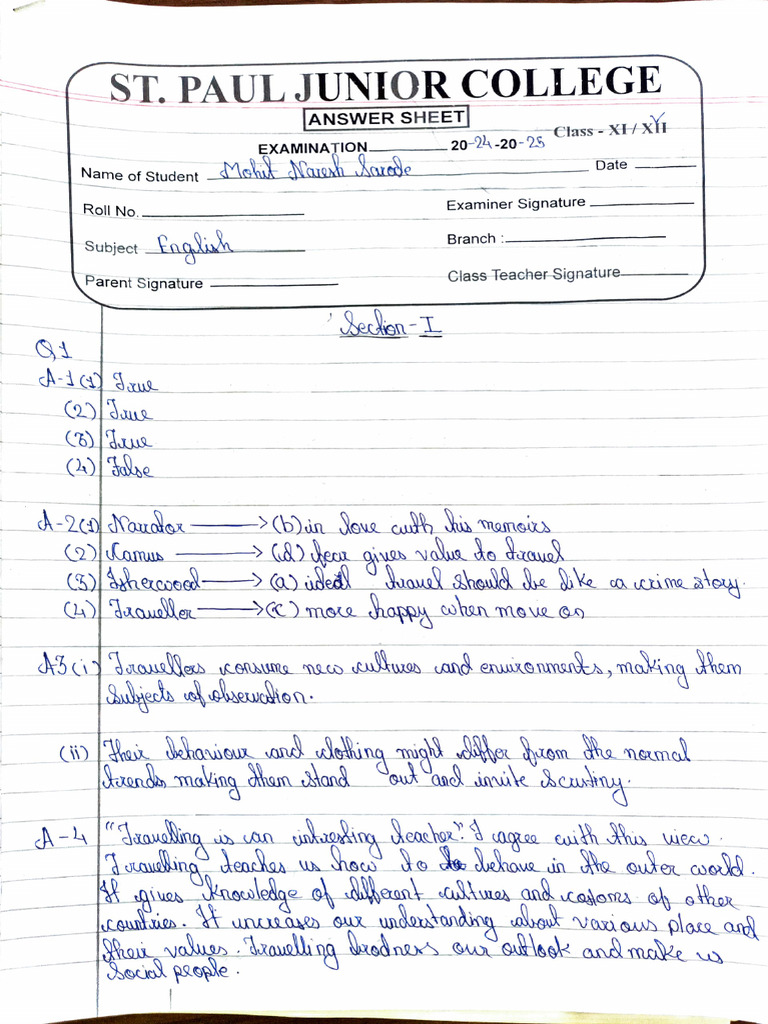 ST. PAUL JUNIOR COLLEGE
ANSWER SHEET
Class - XI / XII
EXAMINATION 20-24-20-25
Name of Student Mohit Naresh Sarode Date
Roll No. Examiner Signature
Subject English Branch :
Parent Signature Class Teacher Signature
Section-I
Q.1
A-1(1) True
(2) True
(3) True
(4) False
A-2(1) Narrator → (b) in love with his memoirs
(2) Camus → (d) fear gives value to travel
(3) Isherwood → (a) ideal travel should be like a crime story.
(4) Traveller → (c) more happy when move on
A3(i) Travellers consume new cultures and environments, making them
subjects of observation.
(ii) Their behaviour and clothing might differ from the normal
trends, making them stand out and invite scrutiny.
A-4 "Travelling is an intresting teacher". I agree with this view.
Travelling teaches us how to behave in the outer world.
It gives knowledge of different cultures and customs of other
countries. It increases our understanding about various place and
their values. Travelling brodners our outlook and make us
social people.